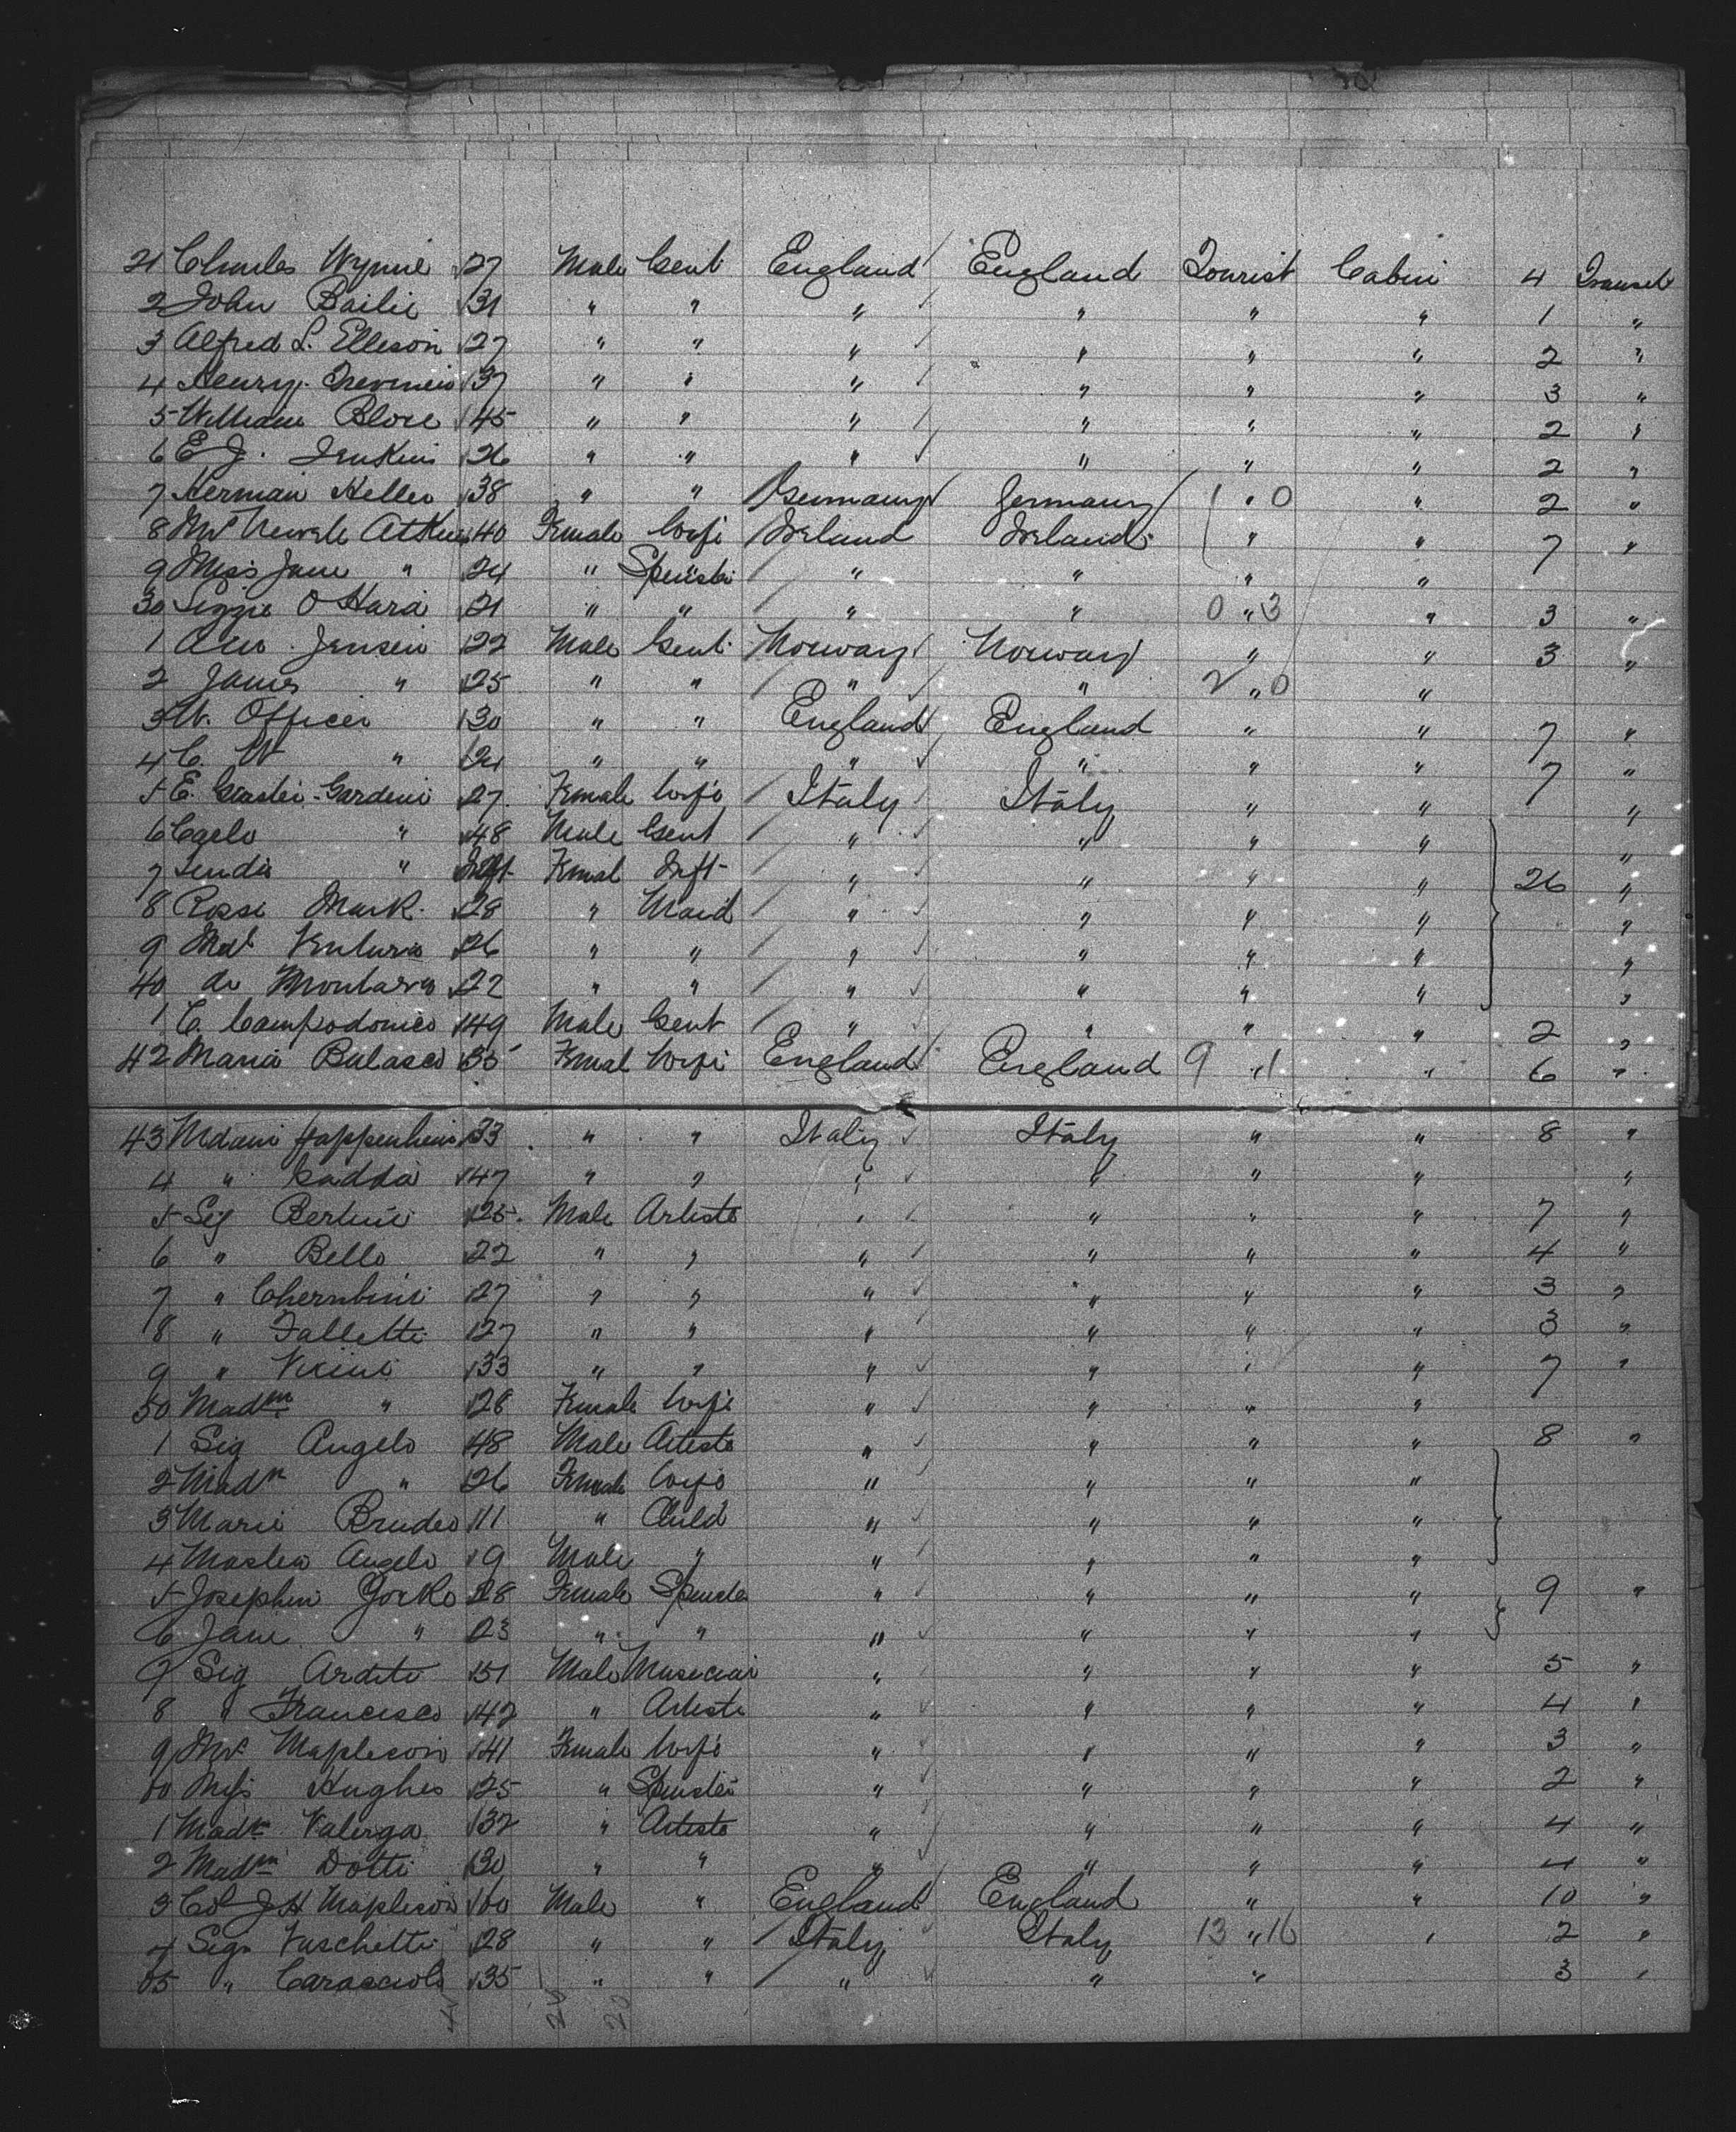 21 Charles Wynne 27 Male Gent England England Tourist Cabin 4 Transit
2 John Bailie 31 " " " " " " 1 "
3 Alfred L. Elleson 27 " " " " " " 2 "
4 Henry 37 " " " " " " 3 "
5 William Blore 45 " " " " " " 2 "
6 E J. Jenkins 26 " " " " " " 2 "
7 Herman Keller 38 " " Germany Germany 1 " 0 " 2 "
8 Mrs Atkins 40 Female Wife Ireland Ireland " " 7 "
9 Miss Jane " 24 " Spinster " " " "
30 Lizzie O Hara 21 " " " " 0 " 3 " 3 "
1 Jensen 22 Male Gent Norway Norway " " 3 "
2 James " 25 " " " " 2 " 0 "
3 W. Officer 30 " " England England " " 7 "
4 C. W " 24 " " " " " " 7 "
5 E. Gardini 27 Female Wife Italy Italy " " "
6 Carlo " 48 Male Gent " " " " "
7 " Inft Femal Inft " " " " 26 "
8 Rossi Mark 28 " Maid " " " " "
9 Mdl Venturis 26 " " " " " " "
40 de 22 " " " " " " "
1 C. Campodonico 49 Male Gent " " " " 2 "
42 Maria Balasco 35 Femal Wife England England 9 " 1 " 6 "
43 Mdam Happenheim 33 " " Italy Italy " " 8 "
4 " Gadda 47 " " " " " " "
5 Sig Bertini 25 Male Artiste " " " " 7 "
6 " Bello 22 " " " " " " 4 "
7 " Cherubini 27 " " " " " " 3 "
8 " Falletti 27 " " " " " " 3 "
9 " 33 " " " " " " 7 "
50 Madm " 28 Female Wife " " " "
1 Sig Angelo 48 Male Artiste " " " " 8 "
2 Madm " 26 Female Wife " " " "
3 Marie 11 " Child " " " "
4 Master Angelo 9 Male " " " " "
5 Josephin Yorke 28 Female Spinster " " " " 9 "
6 Jane " 23 " " " " " "
7 Sig Ardite 51 Male Musician " " " " 5 "
8 " Francisco 42 " Artiste " " " " 4 "
9 Mrs Mapleson 41 Female Wife " " " " 3 "
60 Miss Hughes 25 " Spinster " " " " 2 "
1 Madm Valerga 32 " Artiste " " " " 4 "
2 Madm Dotti 30 " " " " " " 4 "
3 Col J H Mapleson 60 Male " England England " " 10 "
4 Sigr Vaschetti 28 " " Italy Italy 13 " 16 " 2 "
65 " Caracciolo 35 " " " " " 3 "